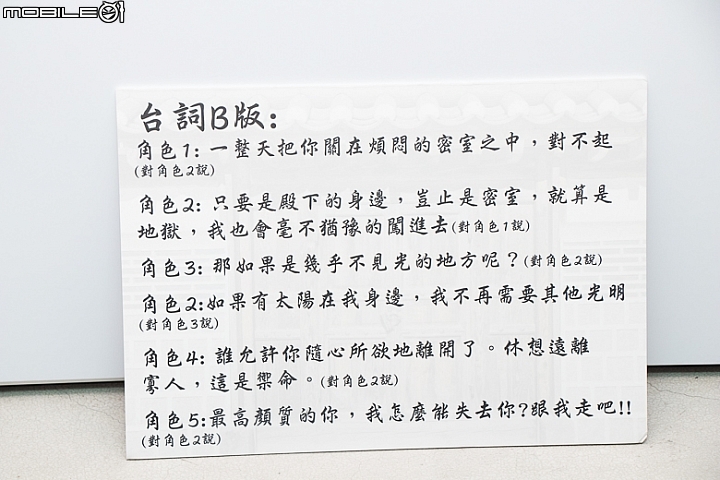 MOBILE01
台詞B版:
角色1: 一整天把你關在煩悶的密室之中，對不起
(對角色2說)
角色2: 只要是殿下的身邊，豈止是密室，就算是
地獄，我也會毫不猶豫的闖進去(對角色1說)
角色3: 那如果是幾乎不見光的地方呢？(對角色2說)
角色2:如果有太陽在我身邊，我不再需要其他光明
(對角色3說)
角色4: 誰允許你隨心所欲地離開了。休想遠離
寡人，這是禦命。(對角色2說)
角色5:最高顏質的你，我怎麼能失去你?跟我走吧!!
(對角色2說)